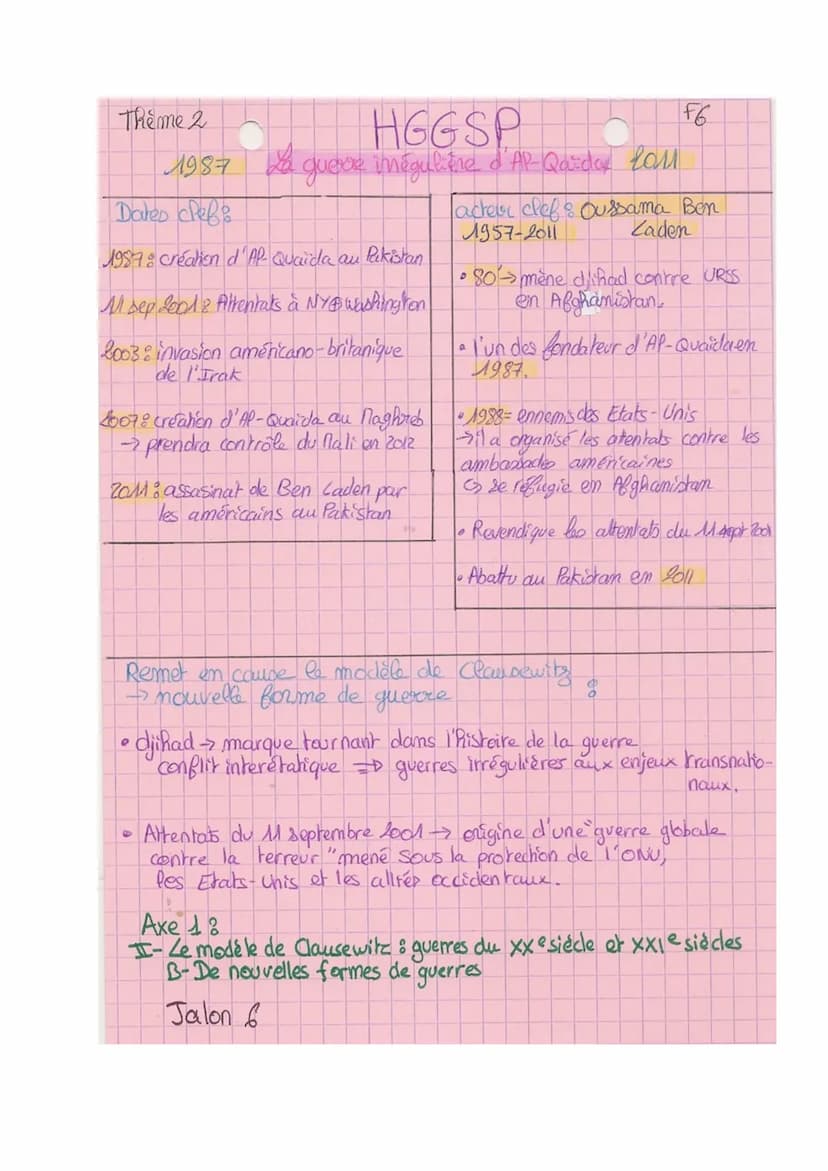 Thème 2
HGGSP
F6
1987 La guerre irrégulière d'Al-Qaïda 2011
Dates clefs :
1987 : création d'Al-Quaïda au Pakistan
11 sep 2001 : Attentats à NY⊕washington
2003 : invasion américano-britanique
de l'Irak
2007 : création d'Al-Quaïda au Maghreb
→ prendra contrôle du Mali en 2012
2011 : assasinat de Ben Laden par
les américains au Pakistan
acteur clef : Oussama Ben
1957-2011 Laden
• 80' → mène djihad contre URSS
en Afghanistan.
• l'un des fondateur d'Al-Quaïda en
1987.
• 1988 = ennemis des Etats-Unis
→ il a organisé les atentats contre les
ambassades américaines
↳ se réfugie en Afghanistan
• Revendique les attentats du 11 sept 2001
• Abattu au Pakistan en 2011
Remet en cause le modèle de Clausewitz :
→ nouvelle forme de guerre
• djihad → marque tournant dans l'histoire de la guerre
conflit interétatique ⇒ guerres irrégulières aux enjeux transnatio-
naux.
• Attentats du 11 septembre 2001 → origine d'une "guerre globale
contre la terreur" mené sous la protection de l'ONU,
les Etats-Unis et les alliés occidentaux.
Axe 1 :
II- Le modèle de Clausewitz : guerres du XXe siècle et XXIe siècles
B- De nouvelles formes de guerres
Jalon 6